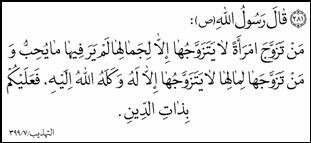 ﴿٢٨١﴾ قَالَ رَسُولُ اللهِ (ص):
مَنْ تَزَوَّجَ امْرَأَةً لاَ يَتَزَوَّجُهَا إلاَّ لِجَمَالِهَا لَمْ يَرَ فِيهَا مَا يُحِبُّ وَ
مَنْ تَزَوَّجَهَا لِمَالِهَا لاَ يَتَزَوَّجُهَا إلاَّ لَهُ وَكَلَهُ اللهُ إِلَيْهِ، فَعَلَيْكُمْ
بِذَاتِ الدِّينِ.
التهذيب/٣٩٩/٧